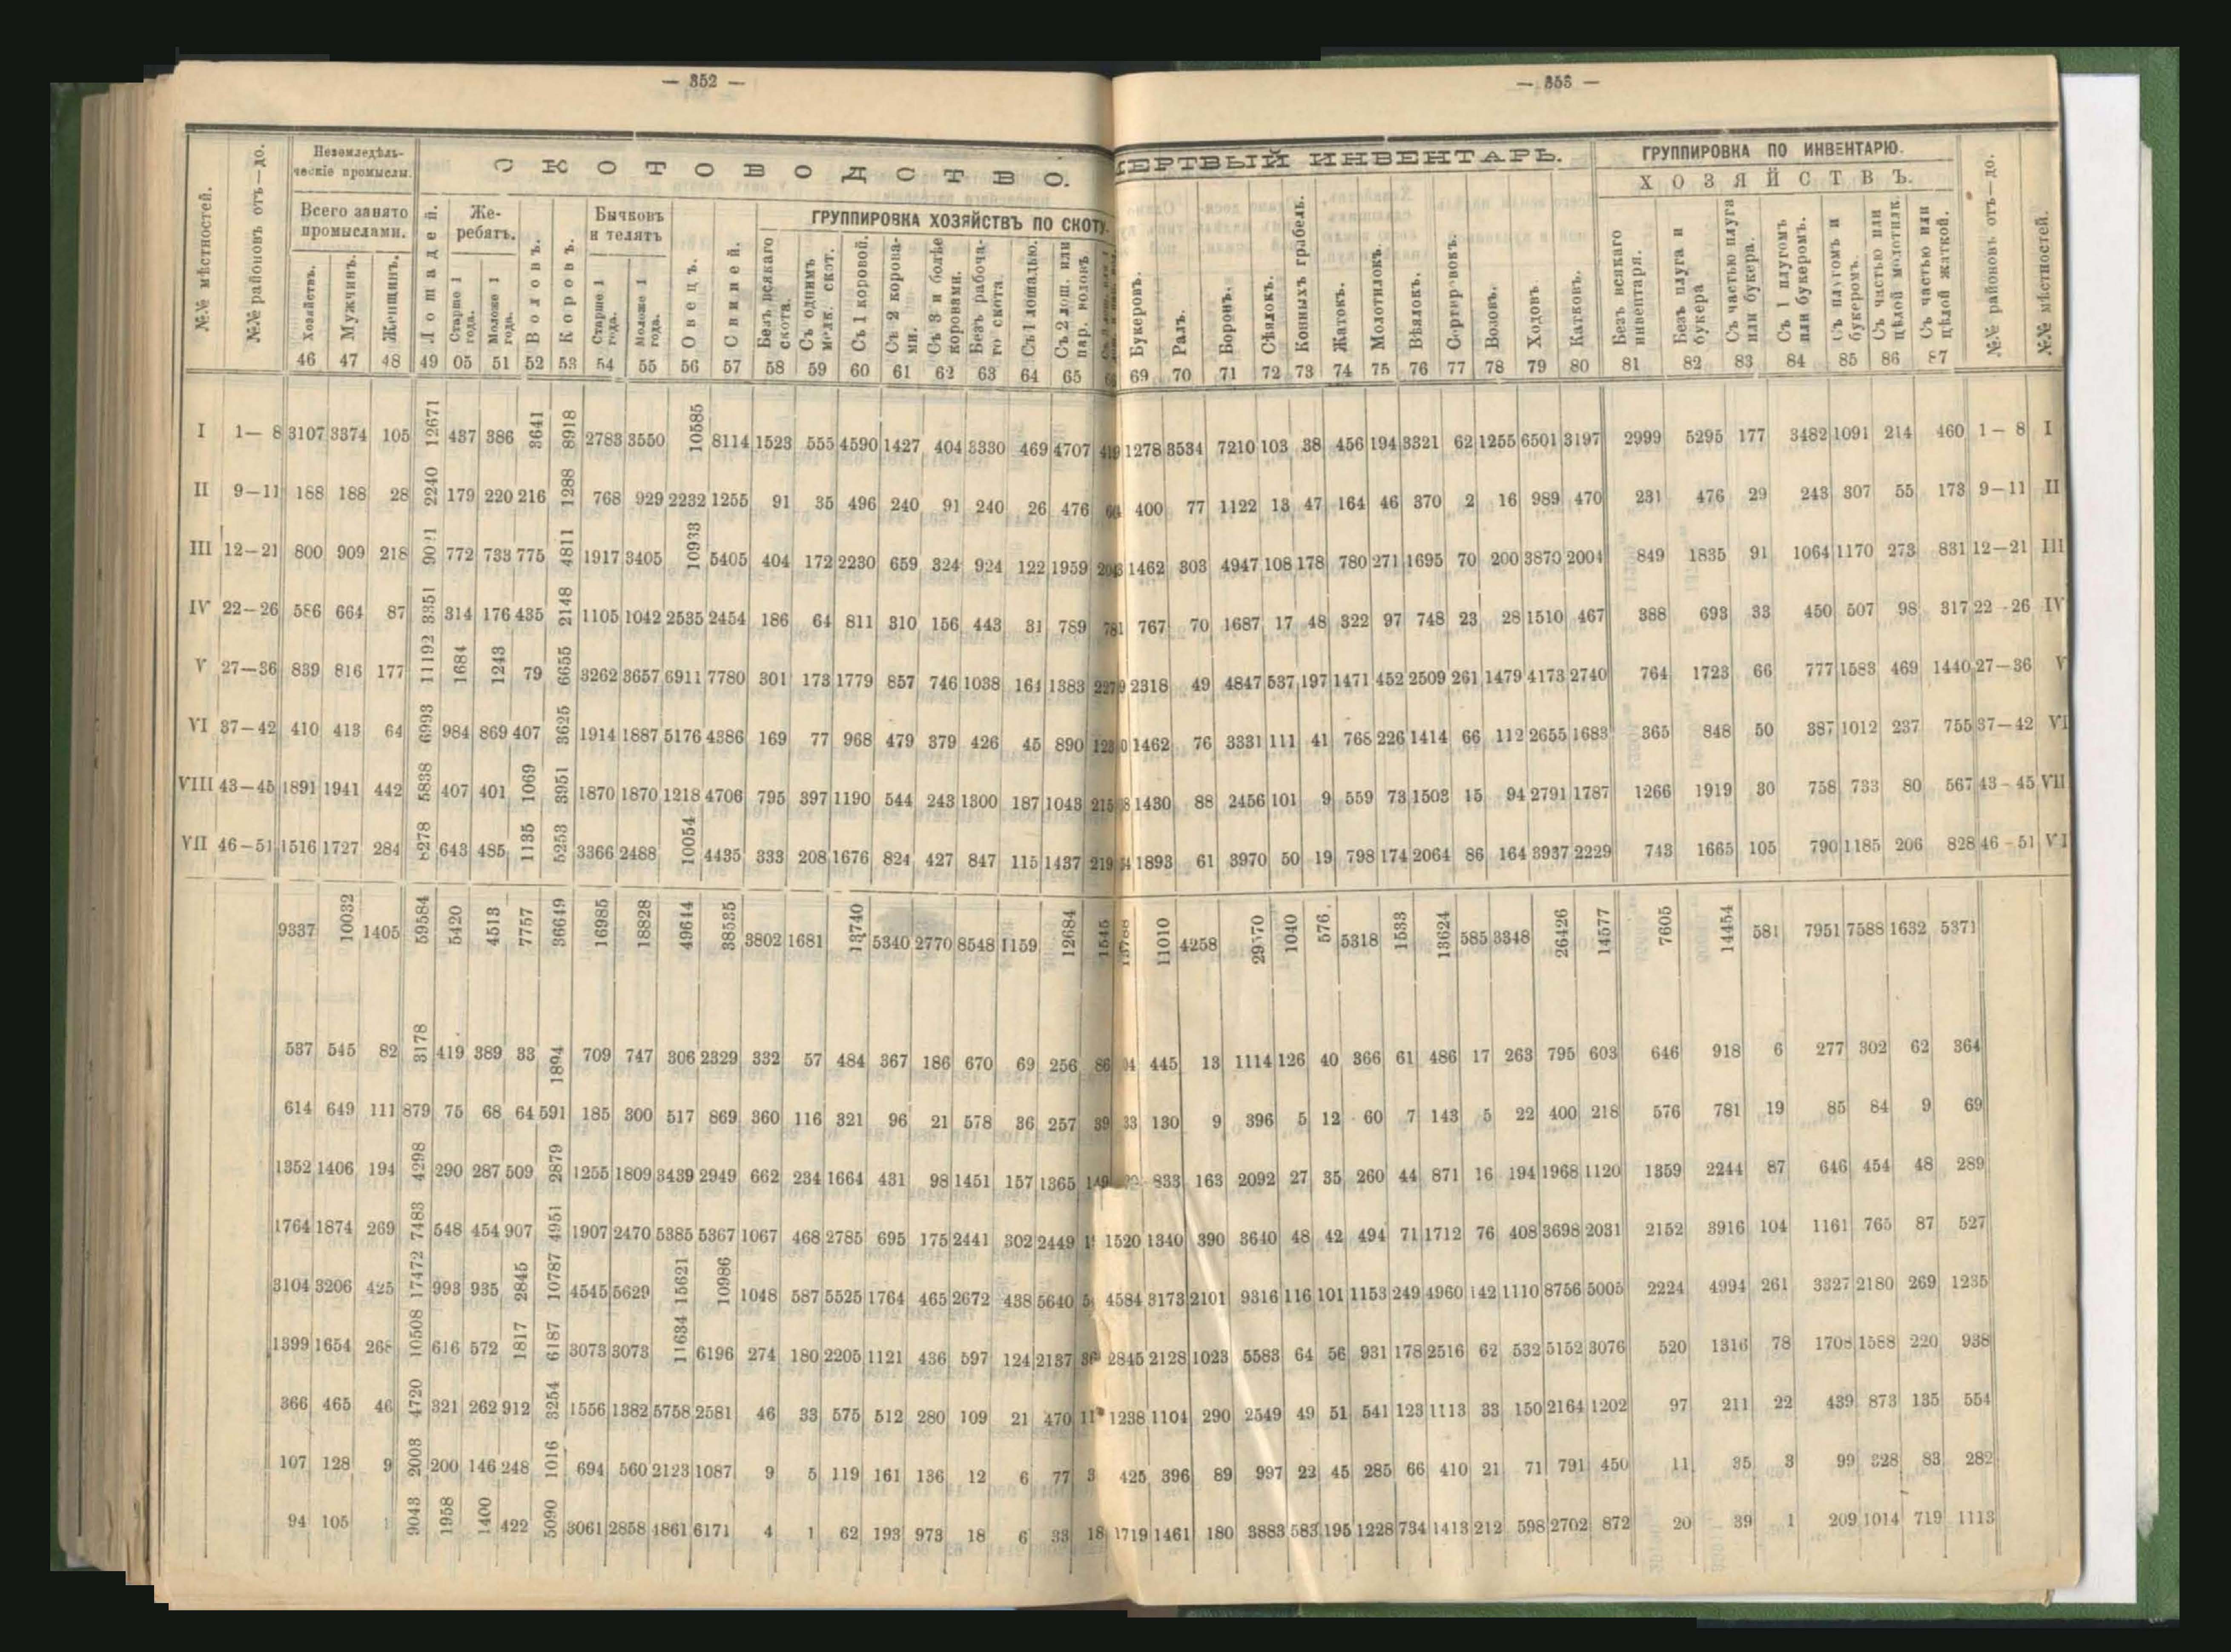 — 352 —
№№ мѣстностей.
№№ районовъ отъ—до.
Неземледѣль-
ческіе промыслы.
Всего занято
промыслами.
Хозяйствъ.
Мужчинъ.
Женщинъ.
СКОТОВОДСТВО.
Лошадей.
Же-
ребятъ.
Старше 1 года.
Моложе 1 года.
Воловъ.
Коровъ.
Бычковъ
и телятъ
Старше 1 года.
Моложе 1 года.
Овецъ.
Свиней.
ГРУППИРОВКА ХОЗЯЙСТВЪ ПО СКОТУ.
Безъ всякаго скота.
Съ однимъ мелк. скот.
Съ 1 коровой.
Съ 2 корова-ми.
Съ 3 и болѣе коровами.
Безъ рабоча-го скота.
Съ 1 лошадью.
Съ 2 лош. или пар. воловъ
46 47 48 49 05 51 52 53 54 55 56 57 58 59 60 61 62 63 64 65
I 1—8 3107 3374 105 12671 437 386 3641 8918 2783 3550 10585 8114 1523 555 4590 1427 404 3330 469 4707
II 9—11 188 188 28 2240 179 220 216 1288 768 929 2232 1255 91 35 496 240 91 240 26 476
III 12—21 800 909 218 9021 772 733 775 4811 1917 3405 10933 5405 404 172 2230 659 324 924 122 1959
IV 22—26 586 664 87 3351 314 176 435 2148 1105 1042 2535 2454 186 64 811 310 156 443 31 789
V 27—36 839 816 177 11192 1684 1243 79 6655 3262 3657 6911 7780 301 173 1779 857 746 1038 164 1383
VI 37—42 410 413 64 6993 984 869 407 3625 1914 1887 5176 4386 169 77 968 479 379 426 45 890
VIII 43—45 1891 1941 442 5838 407 401 1069 3951 1870 1870 1218 4706 795 397 1190 544 243 1300 187 1043
VII 46—51 1516 1727 284 8278 643 485 1135 5253 3366 2488 10054 4435 333 208 1676 824 427 847 115 1437
9337 10032 1405 59584 5420 4513 7757 36649 16985 18828 49644 38535 3802 1681 13740 5340 2770 8548 1159 12684
537 545 82 3178 419 389 33 1894 709 747 306 2329 332 57 484 367 186 670 69 256
614 649 111 879 75 68 64 591 185 300 517 869 360 116 321 96 21 578 36 257
1352 1406 194 4298 290 287 509 2879 1255 1809 3439 2949 662 234 1664 431 98 1451 157 1365
1764 1874 269 7483 548 454 907 4951 1907 2470 5385 5367 1067 468 2785 695 175 2441 302 2449
3104 3206 425 17472 993 935 2845 10787 4545 5629 15621 10986 1048 587 5525 1764 465 2672 438 5640
1399 1654 268 10508 616 572 1817 6187 3073 3073 11634 6196 274 180 2205 1121 436 597 124 2137
366 465 46 4720 321 262 912 3254 1556 1382 5758 2581 46 33 575 512 280 109 21 470
107 128 9 2003 200 146 248 1016 694 560 2123 1087 9 5 119 161 136 12 6 77
94 105 1 9043 1958 1400 422 5090 3061 2858 4861 6171 4 1 62 193 973 18 6 33
— 353 —
МЕРТВЫЙ ИНВЕНТАРЬ.
Букеровъ.
Ралъ.
Боронъ.
Сѣялокъ.
Конныхъ грабель.
Жатокъ.
Молотилокъ.
Вѣялокъ.
Сортировокъ.
Возовъ.
Ходовъ.
Катковъ.
ГРУППИРОВКА ПО ИНВЕНТАРЮ.
ХОЗЯЙСТВЪ.
Безъ всякаго инвентаря.
Безъ плуга и букера
Съ частью плуга или букера.
Съ 1 плугомъ или букеромъ.
Съ плугомъ и букеромъ.
Съ частью или цѣлой молотилк.
Съ частью или цѣлой жаткой.
№№ районовъ отъ—до.
№№ мѣстностей.
69 70 71 72 73 74 75 76 77 78 79 80 81 82 83 84 85 86 87
1278 3534 7210 103 38 456 194 3321 62 1255 6501 3197 2999 5295 177 3482 1091 214 460 1—8 I
400 77 1122 13 47 164 46 370 2 16 989 470 231 476 29 243 307 55 173 9—11 II
1462 303 4947 108 178 780 271 1695 70 200 3870 2004 849 1835 91 1064 1170 273 831 12—21 III
767 70 1687 17 48 322 97 748 23 28 1510 467 388 693 33 450 507 98 317 22-26 IV
2318 49 4847 537 197 1471 452 2509 261 1479 4173 2740 764 1723 66 777 1583 469 1440 27—36 V
1462 76 3331 111 41 768 226 1414 66 112 2655 1683 365 848 50 387 1012 237 755 37—42 VI
1430 88 2456 101 9 559 73 1503 15 94 2791 1787 1266 1919 30 758 733 80 567 43-45 VII
1893 61 3970 50 19 798 174 2064 86 164 3937 2229 743 1665 105 790 1185 206 828 46-51
11010 4258 29570 1040 576 5318 1533 13624 585 3348 26426 14577 7605 14454 581 7951 7588 1632 5371
445 13 1114 126 40 366 61 486 17 263 795 603 646 918 6 277 302 62 364
130 9 396 5 12 60 7 143 5 22 400 218 576 781 19 85 84 9 69
833 163 2092 27 35 260 44 871 16 194 1968 1120 1359 2244 87 646 454 48 289
1520 1340 390 3640 48 42 494 71 1712 76 408 3698 2031 2152 3916 104 1161 765 87 527
4584 3173 2101 9316 116 101 1153 249 4960 142 1110 8756 5005 2224 4994 261 3327 2180 269 1235
2845 2128 1023 5583 64 56 931 178 2516 62 532 5152 3076 520 1316 78 1708 1588 220 938
1238 1104 290 2549 49 51 541 123 1113 33 150 2164 1202 97 211 22 439 873 135 554
425 396 89 997 22 45 285 66 410 21 71 791 450 11 35 3 99 328 83 282
1719 1461 180 3883 583 195 1228 734 1413 212 598 2702 872 20 39 1 209 1014 719 1113